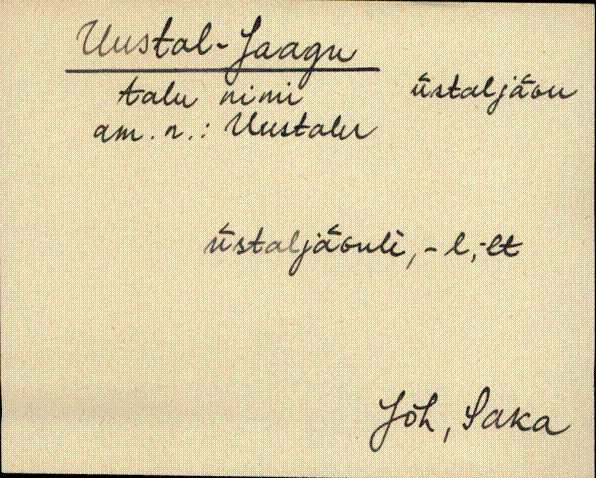 Uustal-Jaagu
talu nimi ūstaljāɢu
am. n.: Uustalu
ūstaljāɢulè, -l, -lt
Jõh, Saka